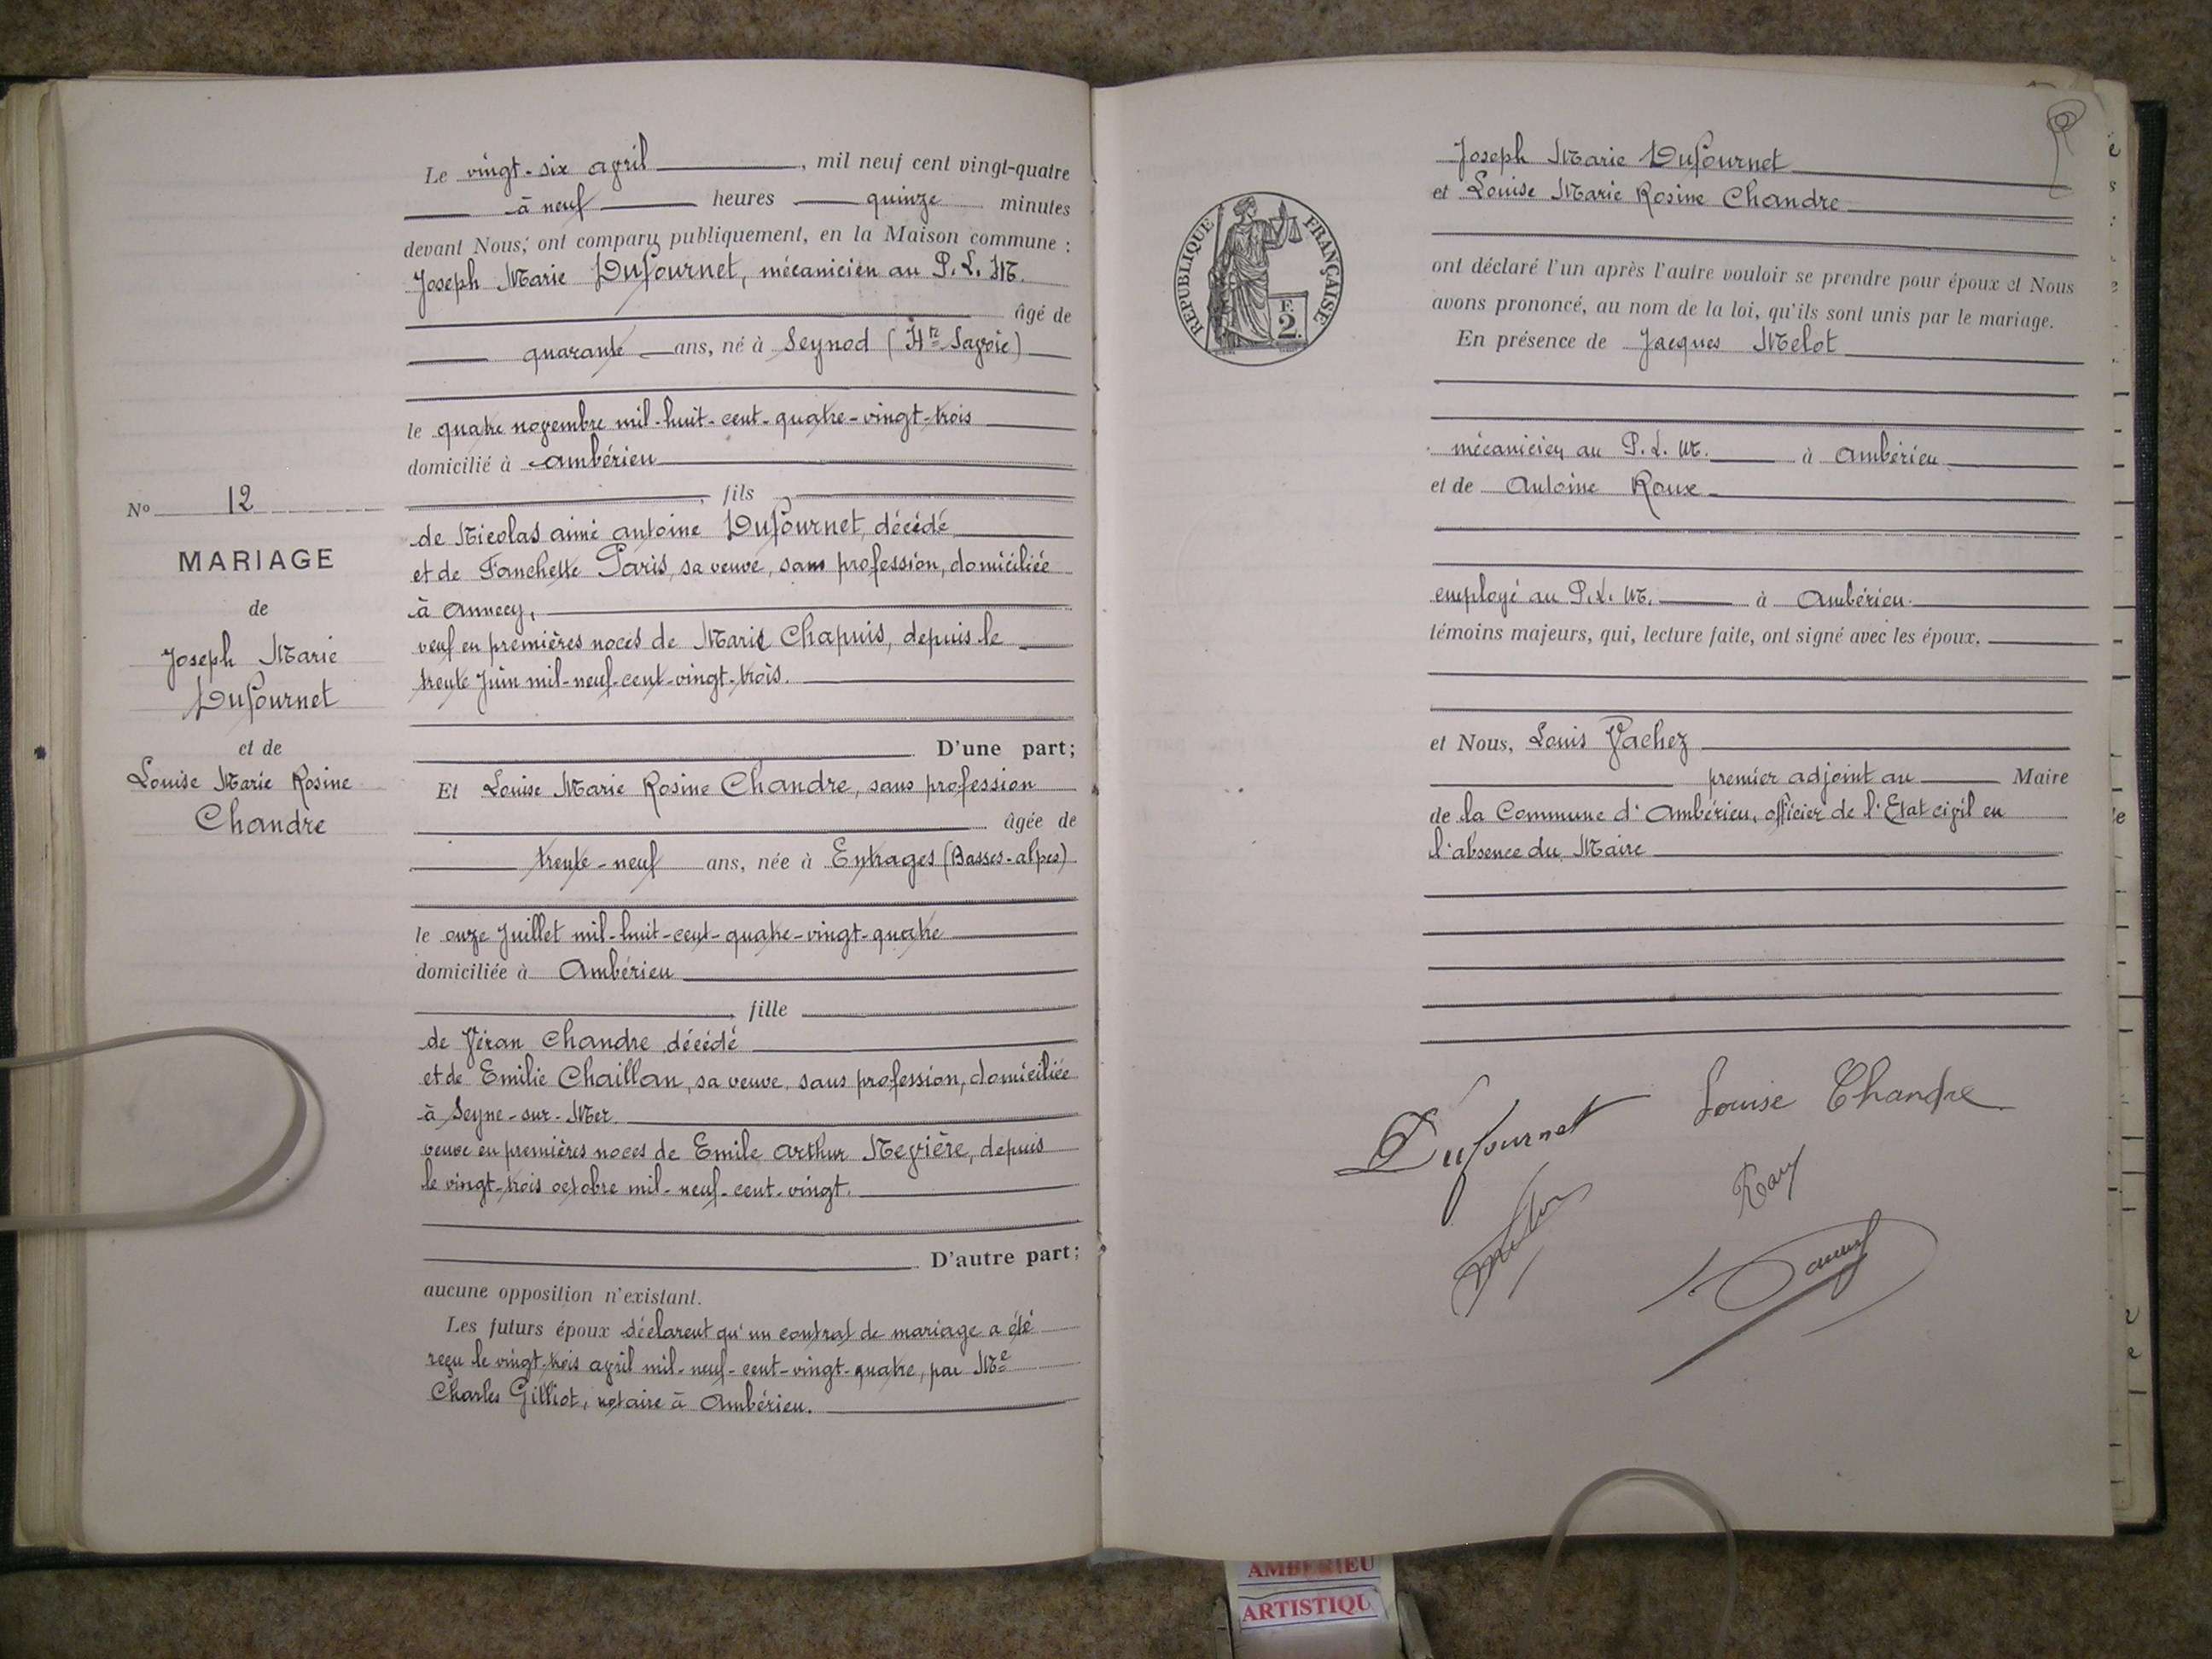 Le vingt-six avril, mil neuf cent vingt-quatre
à neuf heures quinze minutes
devant Nous, ont comparu publiquement, en la Maison commune :
Joseph Marie Dufournet, mécanicien au P. L. M.
âgé de
quarante ans, né à Seynod (Hte Savoie)
le quatre novembre mil-huit-cent-quatre-vingt-trois
domicilié à Ambérieu
, fils
de Nicolas aimé antoine Dufournet, décédé
et de Fanchette Paris, sa veuve, sans profession, domiciliée
à Annecy,
veuf en premières noces de Marie Chapuis, depuis le
trente Juin mil-neuf-cent-vingt-trois.
D'une part;
Et Louise Marie Rosine Chandre, sans profession
âgée de
trente-neuf ans, née à Entrages (Basses-alpes)
le onze Juillet mil-huit-cent-quatre-vingt-quatre
domiciliée à Ambérieu
, fille
de Véran Chandre décédé
et de Emilie Chaillan, sa veuve, sans profession, domiciliée
à Seyne-sur-Mer.
veuve en premières noces de Emile Arthur Negrière, depuis
le vingt-trois octobre mil-neuf-cent-vingt.
D'autre part;
aucune opposition n'existant.
Les futurs époux déclarent qu'un contrat de mariage a été
reçu le vingt-trois avril mil-neuf-cent-vingt-quatre, par Me
Charles Gilliot, notaire à Ambérieu.
No 12
MARIAGE
de
Joseph Marie
Dufournet
et de
Louise Marie Rosine
Chandre
REPUBLIQUE FRANÇAISE
F.
2.
Joseph Marie Dufournet
et Louise Marie Rosine Chandre
ont déclaré l'un après l'autre vouloir se prendre pour époux et Nous
avons prononcé, au nom de la loi, qu'ils sont unis par le mariage.
En présence de Jacques Melot
mécanicien au P. L. M. à Ambérieu
et de Antoine Roux
employé au P. L. M. à Ambérieu.
témoins majeurs, qui, lecture faite, ont signé avec les époux,
et Nous, Louis Vachez
premier adjoint au Maire
de la Commune d'Ambérieu, officier de l'Etat civil en
l'absence du Maire
Dufournet
Louise Chandre
AMBERIEU
ARTISTIQU